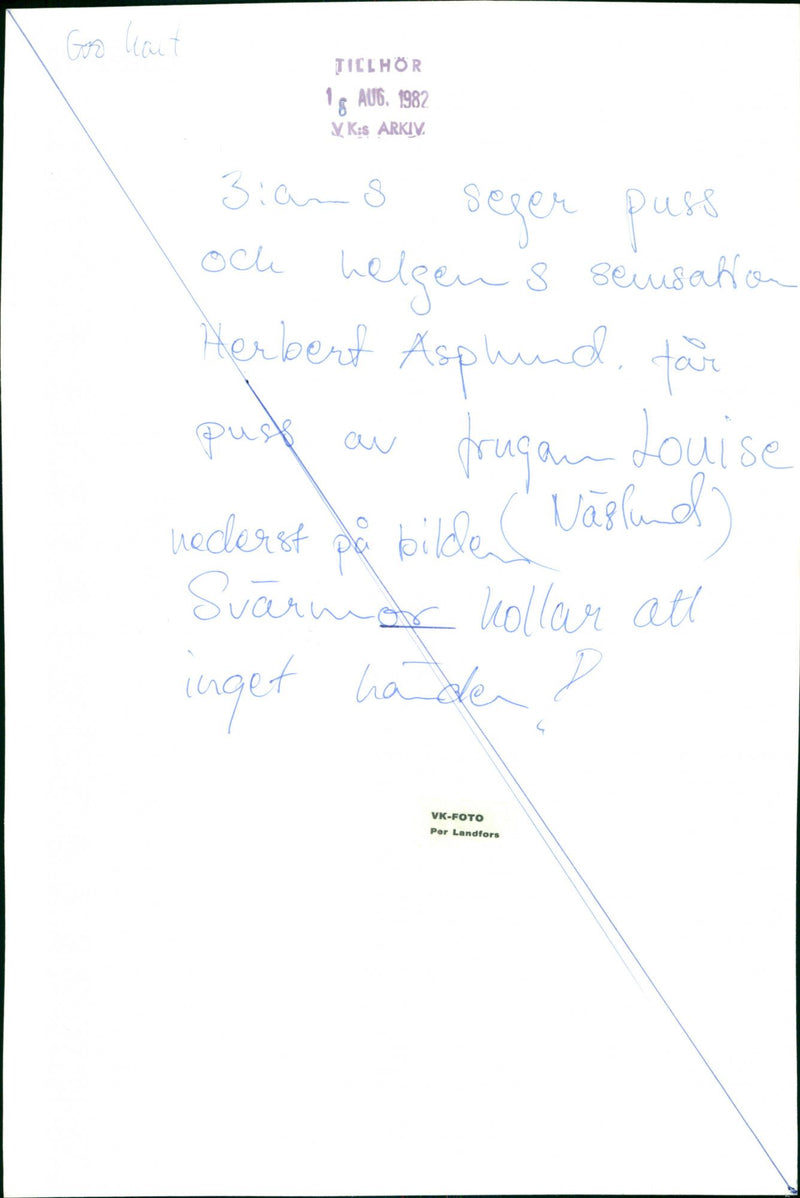 TILLHÖR
16 AUG. 1982
V.K:s ARKIV.
3:ans seger puss
och helgens sensation
Herbert Asplund. får
puss av frugan Louise
nederst på bilden (Näslund)
Svärmor kollar att
inget händer!
VK-FOTO
Per Landfors